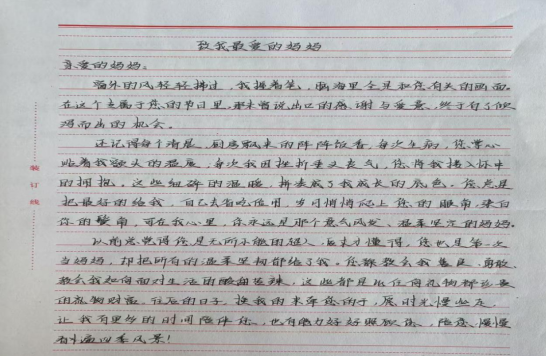 致我最爱的妈妈
亲爱的妈妈。
窗外的风轻轻拂过，我握着笔，脑海里全是和您有关的画面。
在这个专属于您的节日里，那未曾说出口的感谢与爱意，终于有了倾
泻而出的机会。
还记得每个清晨，厨房飘来的阵阵饭香，每次生病，您掌心
贴着我额头的温度，每次我因挫折垂头丧气，您将我搂入怀中
的拥抱。这些细碎的温暖，拼凑成了我成长的底色。您总是
把最好的给我，自己省吃俭用，岁月悄悄爬上您的眼角，染白
你的鬓角，可在我心里，你永远是那个意气风发、温柔坚定的妈妈。
以前总觉得您是无所不能的超人，后来才懂得，您也是第一次
当妈妈，却把所有的温柔坚韧都给了我。您都教会我善良、勇敢
教会我如何面对生活的酸甜苦辣，这些都是比任何礼物都珍贵
的礼物财富。往后的日子，换我的来牵您的手，愿时光慢些走
让我有更多的时间陪伴您，也有能力好好照顾您，陪您慢慢
看遍四季风景！
装订线